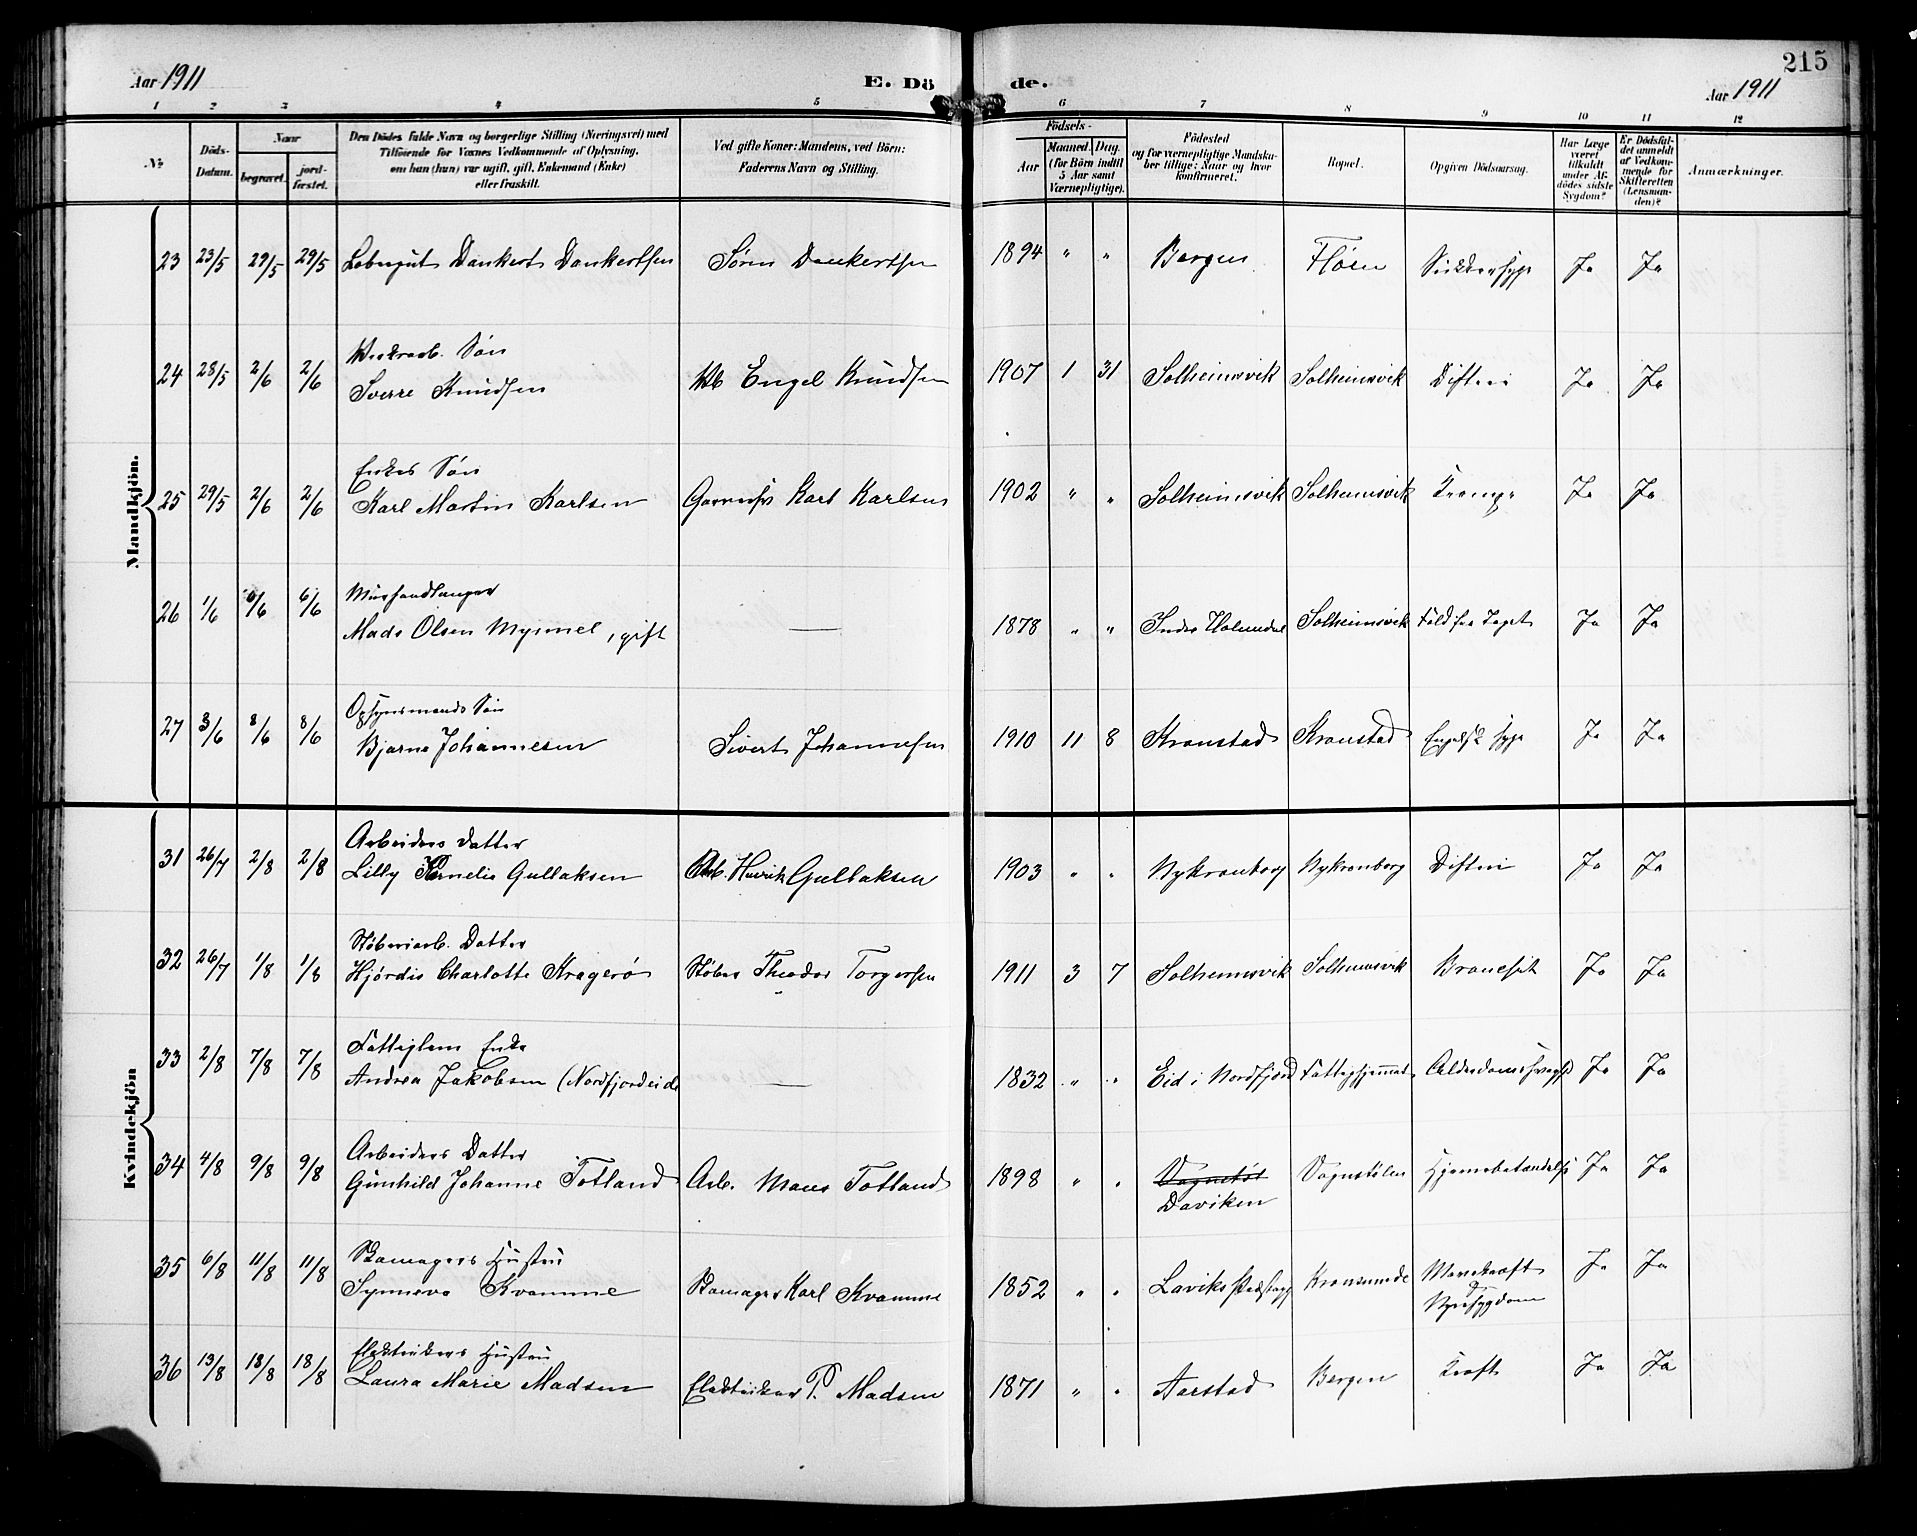 215
Aar 1911 E. Dö de. Aar 1911
1 2 3 4 5 6 7 8 9 10 11 12
No.
Döds-Datum.
Naar
begravet.
jordfæstet.
Den Dödes fulde Navn og borgerlige Stilling (Næringsvei) med
Tilföiende for Voxnes Vedkommende af Oplysning,
om han (hun) var ugift, gift, Enkemand (Enke)
eller fraskilt.
Ved gifte Koner: Mandens, ved Börn:
Faderens Navn og Stilling.
Födsels-
Aar
Maaned. Dag.
(for Börn indtil
5 Aar samt
Værnepligtige).
Födested
og for værnepligtige Mandska-
ber tillige: Naar og hvor
konfirmeret.
Bopæl.
Opgiven Dödsaarsag.
Har Læge
været
tilkaldt
under Af-
dödes sidste
Sygdom?
Er Dödsfal-
det anmeldt
af Vedkom-
mende for
Skifteretten
(Lensman-
den)?
Anmærkninger.
Mandkjön.
23 23/5 29/5 29/5 Løbergut Dankert Dankertsen Sören Dankertsen 1894 " " Bergen Florø Sukkersyge Ja Ja
Værkarb. Sön
24 28/5 2/6 2/6 Sverre Knudsen Engel Knudsen 1907 1 31 Solheimsvik Solheimsvik Difteri Ja Ja
Enkes Sön
25 29/5 2/6 2/6 Karl Martin Karlsen Karl Karlsen 1902 " " Solheimsvik Solheimsvik Krampe Ja Ja
Murhandlanger
26 1/6 6/6 6/6 Mads Olsen Myrmel, gift — 1878 " " Indre Holmedal Solheimsvik Fald fra Taget Ja Ja
Opsynsmands Sön
27 3/6 8/6 8/6 Bjarne Johannesen Sivert Johannesen 1910 11 8 Kronstad Kronstad Engelsk Syge Ja Ja
Kvindekjön
Arbeiders Datter
31 26/7 2/8 2/8 Lilly Kornelia Gullaksen Arb. Henrik Gullaksen 1903 " " Nykronborg Nykronborg Difteri Ja Ja
Støberiarb. Datter
32 26/7 1/8 1/8 Hjördis Charlotte Kragerö Støber Theodor Torgersen 1911 3 7 Solheimsvik Solheimsvik Bronchit Ja Ja
Fattiglem Enke
33 2/8 7/8 7/8 Andrea Jakobsen (Nordfjordeide — 1832 " " Eid i Nordfjord Fattighjemmet Alderdomssvaghed Ja Ja
Arbeiders Datter
34 4/8 9/8 9/8 Gunhild Johanne Totland Arb. Mons Totland 1898 " " Vognstöl Vognstölen Hjernebetændelse Ja Ja
Daviken
Skomagers Hustru
35 6/8 11/8 11/8 Synneva Kvamme Skomager Karl Kvamme 1852 " " Laviks Præstegj Kronminde Mavekræft Ja Ja
Nyresygdom
Elektrikers Hustru
36 13/8 18/8 18/8 Laura Marie Madsen Elektriker P. Madsen 1871 " " Aarstad Bergen Kræft Ja Ja